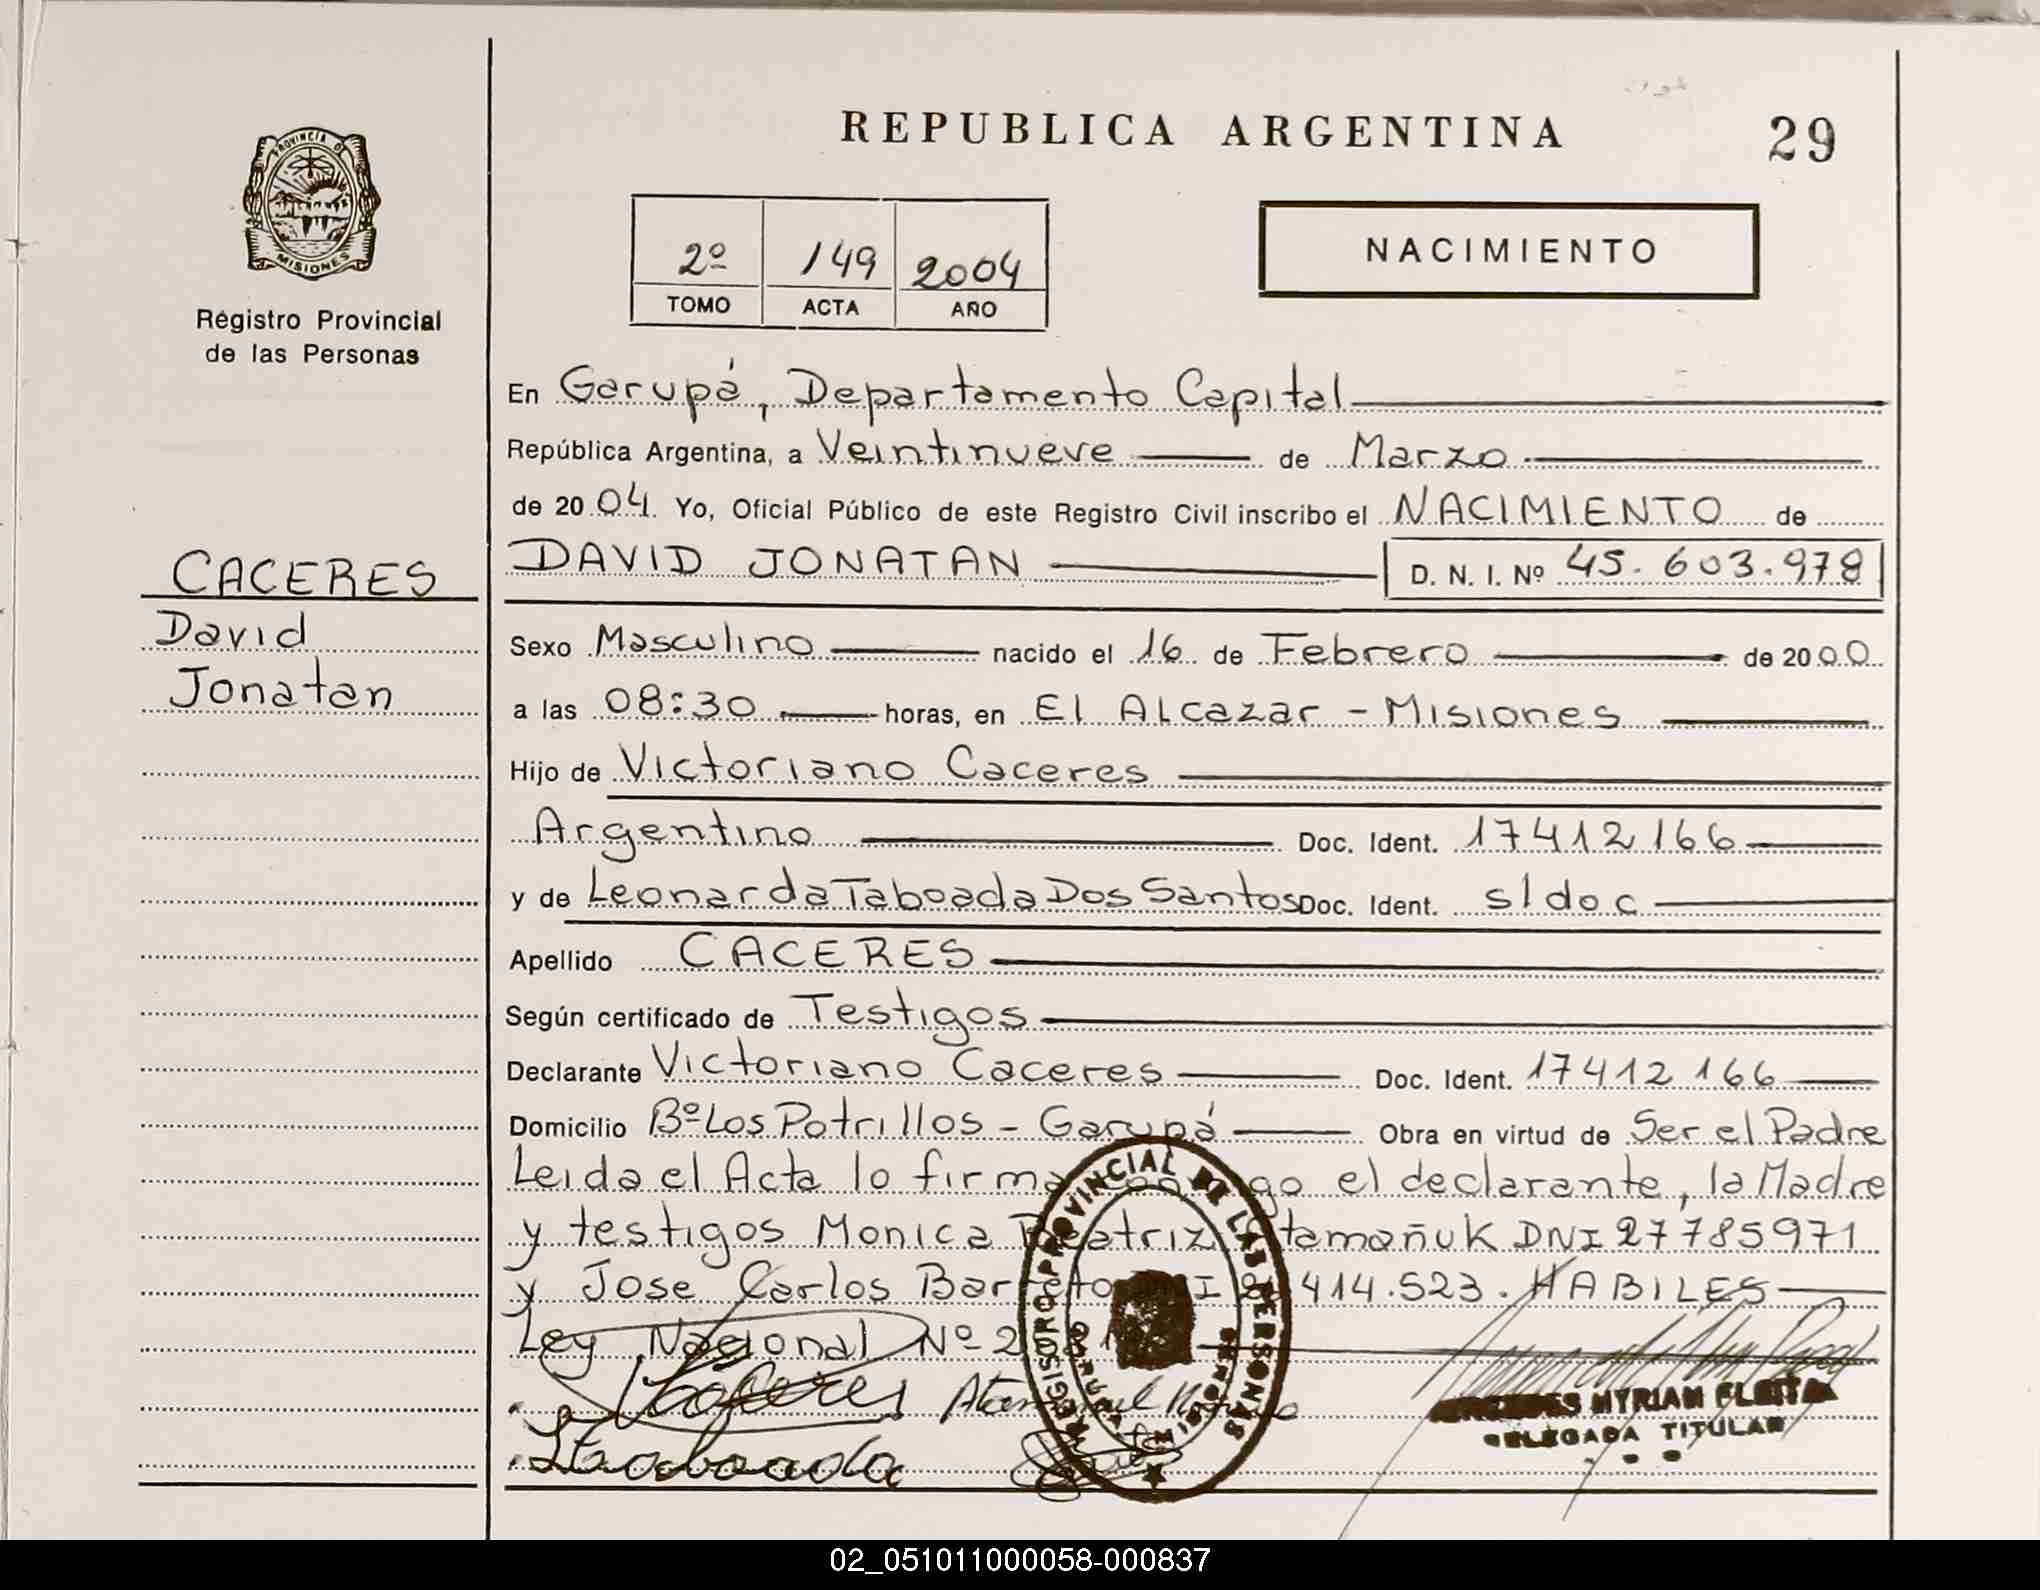 REPUBLICA ARGENTINA
29
PROVINCIA DE
MISIONES
Registro Provincial
de las Personas
2º 149 2004
TOMO ACTA AÑO
NACIMIENTO
En Garupá, Departamento Capital
República Argentina, a Veintinueve de Marzo
de 2004. Yo, Oficial Público de este Registro Civil inscribo el NACIMIENTO de
DAVID JONATAN D. N. I. Nº 45.603.978
CACERES
David
Jonatan
Sexo Masculino nacido el 16 de Febrero de 2000
a las 08:30 horas, en El Alcazar - Misiones
Hijo de Victoriano Caceres
Argentino Doc. Ident. 17412166
y de Leonarda Taboada Dos Santos Doc. Ident. s/doc
Apellido CACERES
Según certificado de Testigos
Declarante Victoriano Caceres Doc. Ident. 17412166
Domicilio Bº Los Potrillos - Garupá Obra en virtud de Ser el Padre
Leida el Acta lo firma el declarante, la Madre
y testigos Monica Beatriz DNI 27785971
y Jose Carlos Barreto 414.523. HABILES
Ley Nacional Nº 2
Caceres
Taboada
REGISTRO PROVINCIAL DE LAS PERSONAS
MYRIAM
DELEGADA TITULAR
02_051011000058-000837